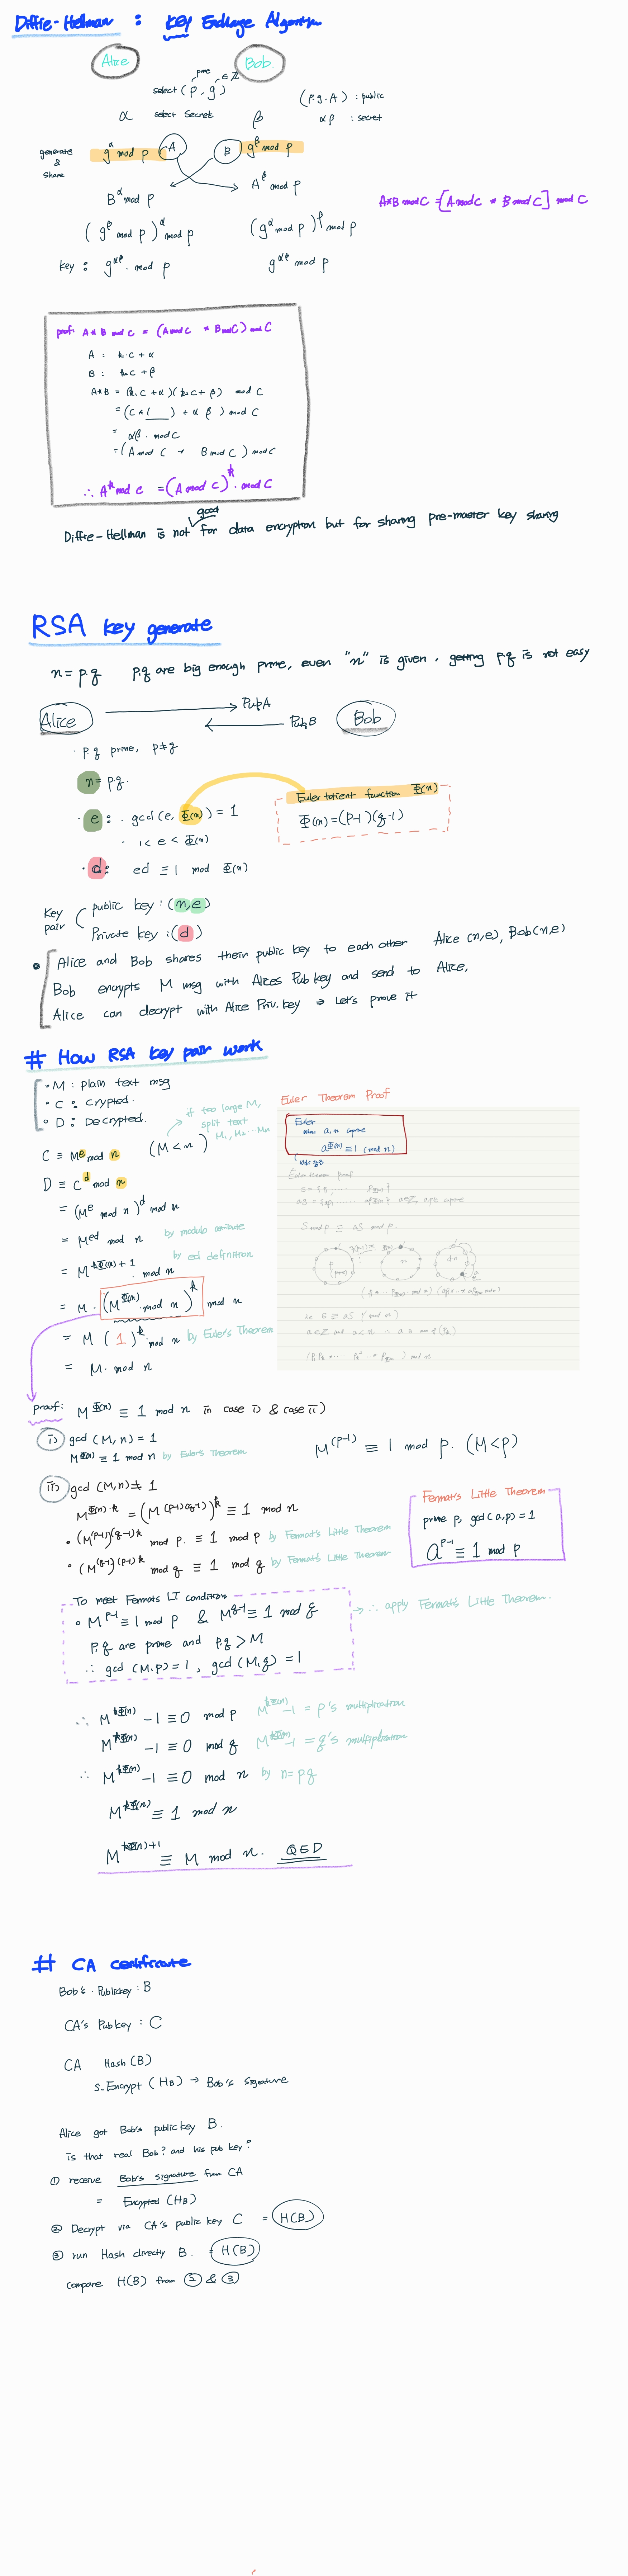 Diffie-Hellman : key Exchange Algorithm
Alice Bob.
prime ∈ Z
select (p, g)
(p.g.A) : public
α select Secrets β
αβ : secret
generate & share
g^α mod p A B g^β mod p
B^α mod p A^β mod p
A*B mod C = [A mod C * B mod C] mod C
(g^β mod p)^α mod p (g^α mod p)^β mod p
key : g^αβ. mod p g^αβ mod p
proof: A*B mod C = (A mod C * B mod C) mod C
A : k₁.C + α
B : k₂C + β
A*B = (k₁C + α)(k₂C + β) mod C
= (C*(___) + αβ) mod C
= αβ. mod C
= (A mod C * B mod C) mod C
∴ A^k mod C = (A mod C)^k. mod C
good
Diffie-Hellman is not for data encryption but for sharing pre-master key sharing
RSA key generate
n = p.q p.q are big enough prime, even "n" is given, getting p.q is not easy
Alice PubA PubB Bob
· p.q prime, p≠q
n = p.q.
Euler totient function Φ(n)
· e : · gcd(e, Φ(n)) = 1
Φ(n) = (p-1)(q-1)
· 1 < e < Φ(n)
· d : ed ≡ 1 mod Φ(n)
key pair
public key : (n,e)
Private key : (d)
Alice and Bob shares their public key to each other Alice (n,e), Bob(n,e)
Bob encrypts M msg with Alices Pub key and send to Alice,
Alice can decrypt with Alice Priv. key ⇒ Let's prove it
# How RSA key pair work
· M : plain text msg
· C : Crypted.
· D : Decrypted.
if too large M,
split text
M₁, M₂ ··· Mn
C ≡ M^e mod n (M < n)
D ≡ C^d mod n
= (M^e mod n)^d mod n
= M^ed mod n by modulo attribute
= M^kΦ(n)+1. mod n by ed definition
= M · (M^Φ(n). mod n)^k mod n
= M (1)^k. mod n by Euler's Theorem
= M. mod n
Euler Theorem Proof
Euler
a^Φ(n) ≡ 1 (mod n)
proof: M^Φ(n) ≡ 1 mod n in case i) & case ii)
i) gcd (M, n) = 1
M^Φ(n) ≡ 1 mod n by Euler's Theorem
M^(p-1) ≡ 1 mod p. (M<p)
ii) gcd (M,n) ≠ 1
M^Φ(n)·k = (M^(p-1)(q-1))^k ≡ 1 mod n
· (M^(p-1))^(q-1)k mod p. ≡ 1 mod p by Fermat's Little Theorem
· (M^(q-1))^(p-1)k mod q ≡ 1 mod q by Fermat's Little Theorem
Fermat's Little Theorem
prime p, gcd(a,p) = 1
a^p-1 ≡ 1 mod p
To meet Fermats LT condition
· M^p-1 ≡ 1 mod p & M^q-1 ≡ 1 mod q
→ ∴ apply Fermat's Little Theorem.
p,q are prime and p,q > M
∴ gcd (M.p) = 1, gcd (M,q) = 1
∴ M^kΦ(n) -1 ≡ 0 mod p M^kΦ(n) -1 = p's multiplication
M^kΦ(n) -1 ≡ 0 mod q M^kΦ(n) -1 = q's multiplication
∴ M^kΦ(n) -1 ≡ 0 mod n by n = p.q
M^kΦ(n) ≡ 1 mod n
M^kΦ(n)+1 ≡ M mod n. QED
# CA certificate
Bob's. Publickey : B
CA's Pubkey : C
CA Hash (B)
S-Encrypt (HB) → Bob's Signature
Alice got Bob's public key B.
is that real Bob? and his pub key?
① receive Bob's signature from CA
= Encrypted (HB)
② Decrypt via CA's public key C = H(B)
③ run Hash directly B. = H(B)
compare H(B) from ② & ③